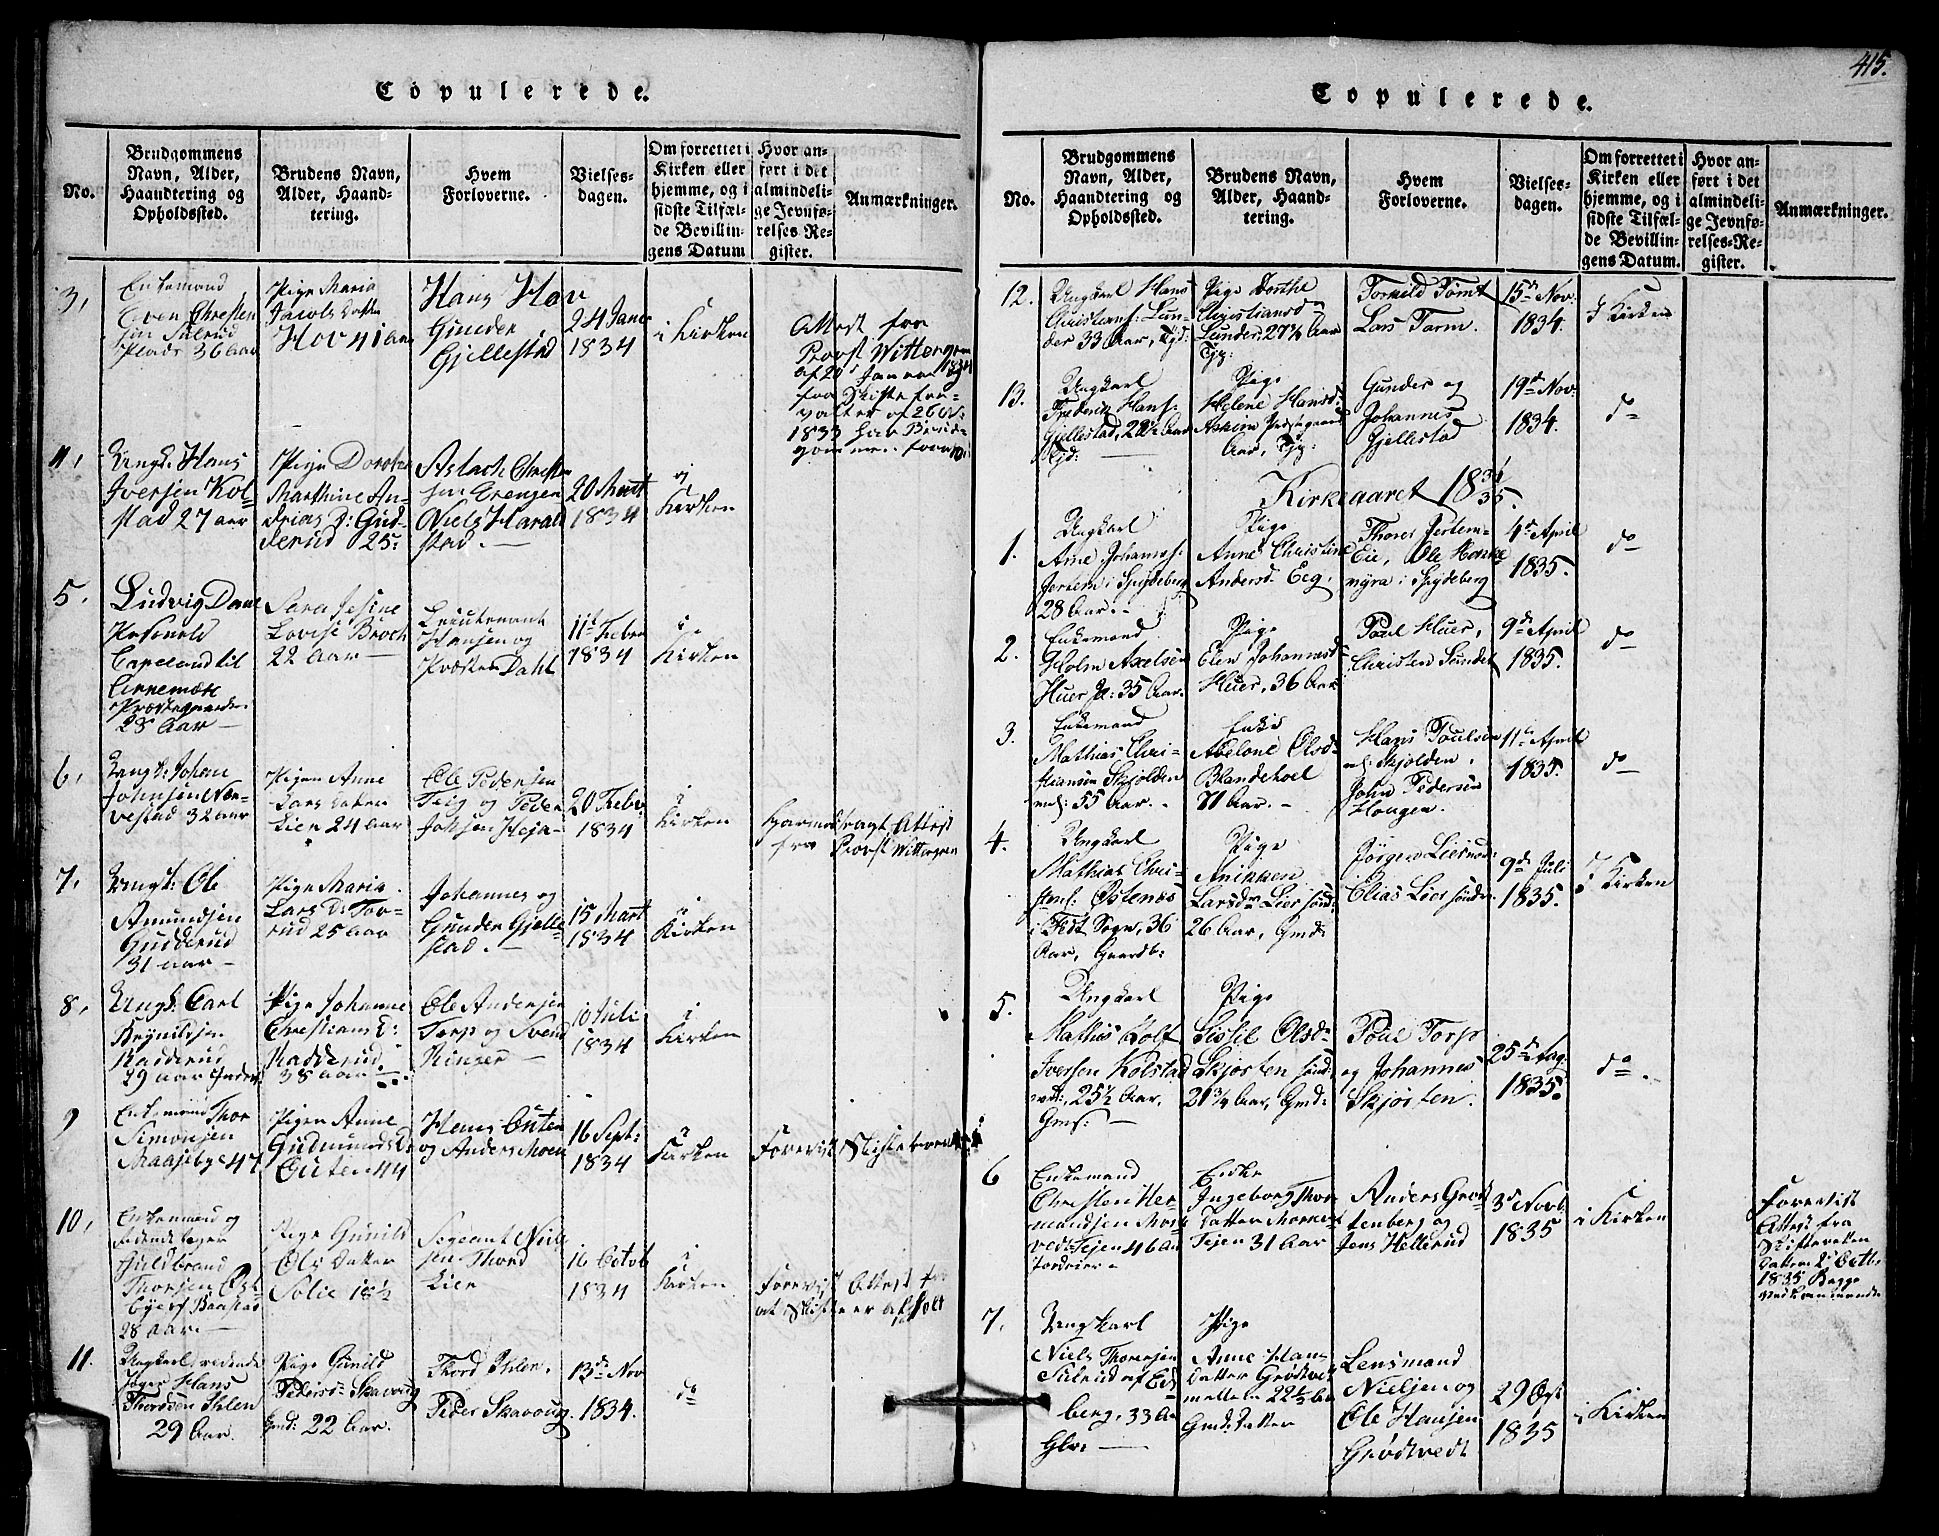 Copulerede.
No.
Brudgommens
Navn, Alder,
Haandtering og
Opholdssted.
Brudens Navn,
Alder, Haand-
tering.
Hvem
Forloverne.
Vielses-
dagen.
Om forrettet i
Kirken eller
hjemme, og i
sidste Tilfæl-
de Bevillin-
gens Datum
Hvor an-
ført i det
almindeli-
ge Jevnfø-
relses Re-
gister.
Anmærkninger.
3,
Enkemand
Even Christen
sen
Plads 36 Aar
Pige Maria
Jacobs Datter
Hov 41 aar
Hans Hov
Gunder
Gjellestad
24 Janr
1834
i Kirken
Attest fra
Provst Wittergren
af 20 Januar 1834
fra Skifte for-
valter af
1833 har Brud-
gommen
Ungk: Hans
Iversen Kol-
stad 27 aar
Pige Dorthe
Marthine An-
drias D: Gud-
derud 25.
Aslach Christen
sen
Niels Harald
stad.
20 Mart
1834
i
Kirken
5,
Ludvig Daae
Capeland til
Præstegaarden
28 Aar
Sara Jesine
Lovise Broch
22 Aar
Lieutenant
Hansen og
Præsten Dahl
11t Febr
1834
i
Kirken
6,
Ungk: Johan
Johnsen Nær-
vestad 32 aar
Pigen Anne
Lars Datter
Lier 24 aar
Ole Pedersen
Teig og Peder
Johsen Heja
20 Febr
1834
i
Kirken
Attest
fra Provst Wittergren
7,
Ungk: Ole
Amundsen
Gudderud
31 aar
Pige Maria
Lars D: Tor-
rud 25 aar
Johannes og
Gunder Gjelle
stad.
15 Mart
1834
i
Kirken
8,
Ungk: Carl
Brynilsen
Radderud
29 aar
Pige Johanne
Christians D:
Radderud
38 aar
Ole Andersen
Torp og Svend
Ringer
10 Juli
1834
i
Kirken
9
Enkemand Thor
Simonsen
Maaseby 47
Pigen Anne
Gudmunds D
Outen 44
Hans Outen
og Anders Moen
16 Sept:
1834
i
Kirken
Forevist Skiftebrev
10,
Enkemand og
Guldbrand
Thorsen Øst
28 aar.
Pige Gunild
Ols Datter
Solie 18½
Sergeant Niels
sen Thord
Lier
16 Octob
1834
i
Kirken
Forevist Attest for
at Skifte er afholt
11.
Ungkarl,
Jæger Hans
Thordsen Ihlen
29 Aar.
Pige Gunild
Pedersd: Skavoug
Gmd: 22 Aar.
Thord Ihlen,
Peder Skavoug.
13de Nov
1834.
do
415.
Copulerede.
No.
Brudgommens
Navn, Alder,
Haandtering og
Opholdssted.
Brudens Navn,
Alder, Haand-
tering.
Hvem
Forloverne.
Vielses-
dagen.
Om forrettet i
Kirken eller
hjemme, og i
sidste Tilfæl-
de Bevillin-
gens Datum.
Hvor an-
ført i det
almindeli-
ge Jevnfø-
relses-Re-
gister.
Anmærkninger.
12.
Ungkarl Hans
Christians: Lun-
der 33 Aar,
Pige Dorthe
Christiansd
Lunder, 27½ Aar
Torkild Tømt
Lars Torm.
15de Nov:
1834.
I Kirken
13.
Ungkarl
Frederik Hans:
Gjellestad, 28½ Aar
Pige
Helene Hansd:
Askim Præstegaard
Gunder og
Johannes
Gjellestad
19de Nov:
1834.
do
Kirkeaaret 1834/35.
1.
Ungkarl
Arne Johanns:
Jertem i Spydeberg
28 Aar.
Pige
Anne Christine
Andersd: Eeg,
Thorer Jertem-
Eie, Ole
myra i Spydeberg
4de April
1835.
do
2.
Enkemand
Holm Axelsen
Huer 35 Aar.
Pige
Elen Johannesd
Huer, 36 Aar
Poul Huer,
Christen Sundet
9de April
1835.
do
3.
Enkemand
Mathias Chri-
stiansen Skjolden
55 Aar.
Enke
Abelone Olsd
71 Aar.
Hans Poulsen
Skjolden,
John Pedersen
Haugen.
11te April
1835.
do
4.
Ungkarl
Mathias Chri-
stens: Østenes
i Fedt Sogn, 36
Aar, Gaardb:
Pige
Anikken
Larsd: Lier sønd:
26 Aar, Gmd:
Jørgen Lier
Elias Lier søndr
9de Juli
1835.
I Kirken
5.
Ungkarl
Mathias Rolf
Iversen Kolstad
25½ Aar,
Gms:
Pige
Sissil Olsd:
Skjøsten sønd:
21¾ Aar, Gmd:
Poul Torp
og Johannes
Skjøsten.
25de Aug
1835.
do
6
Enkemand
Christen Her-
mandsen
Fejen 46 Aar
Enke
Ingeborg Thor
datter
Fejen 31 Aar
Anders Grøt
tenberg og
Jens Hellerud
3de Novb
1835
i Kirken
Forevist
Attest fra
Skifteretten
datteret 2 Octb:
1835
vedkommende
7,
Ungkarl
Niels Thoresen
Sulerud af Eids
berg, 33 Aar
Pige
Anne Han-
datter Grødtvedt
mellem 22½ Aar
Gmd: datter
Lensmand
Nielsen og
Ole Hansen
Grødtvedt
29
1835
i Kirken